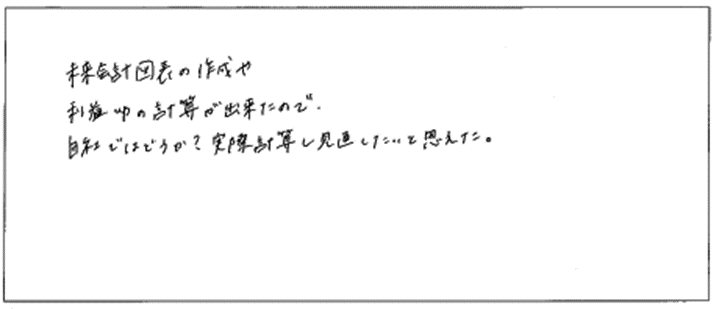 未来会計図表の作成や
利益upの計算が出来たので、
自社ではどうか？実際計算し見直したいと思えた。